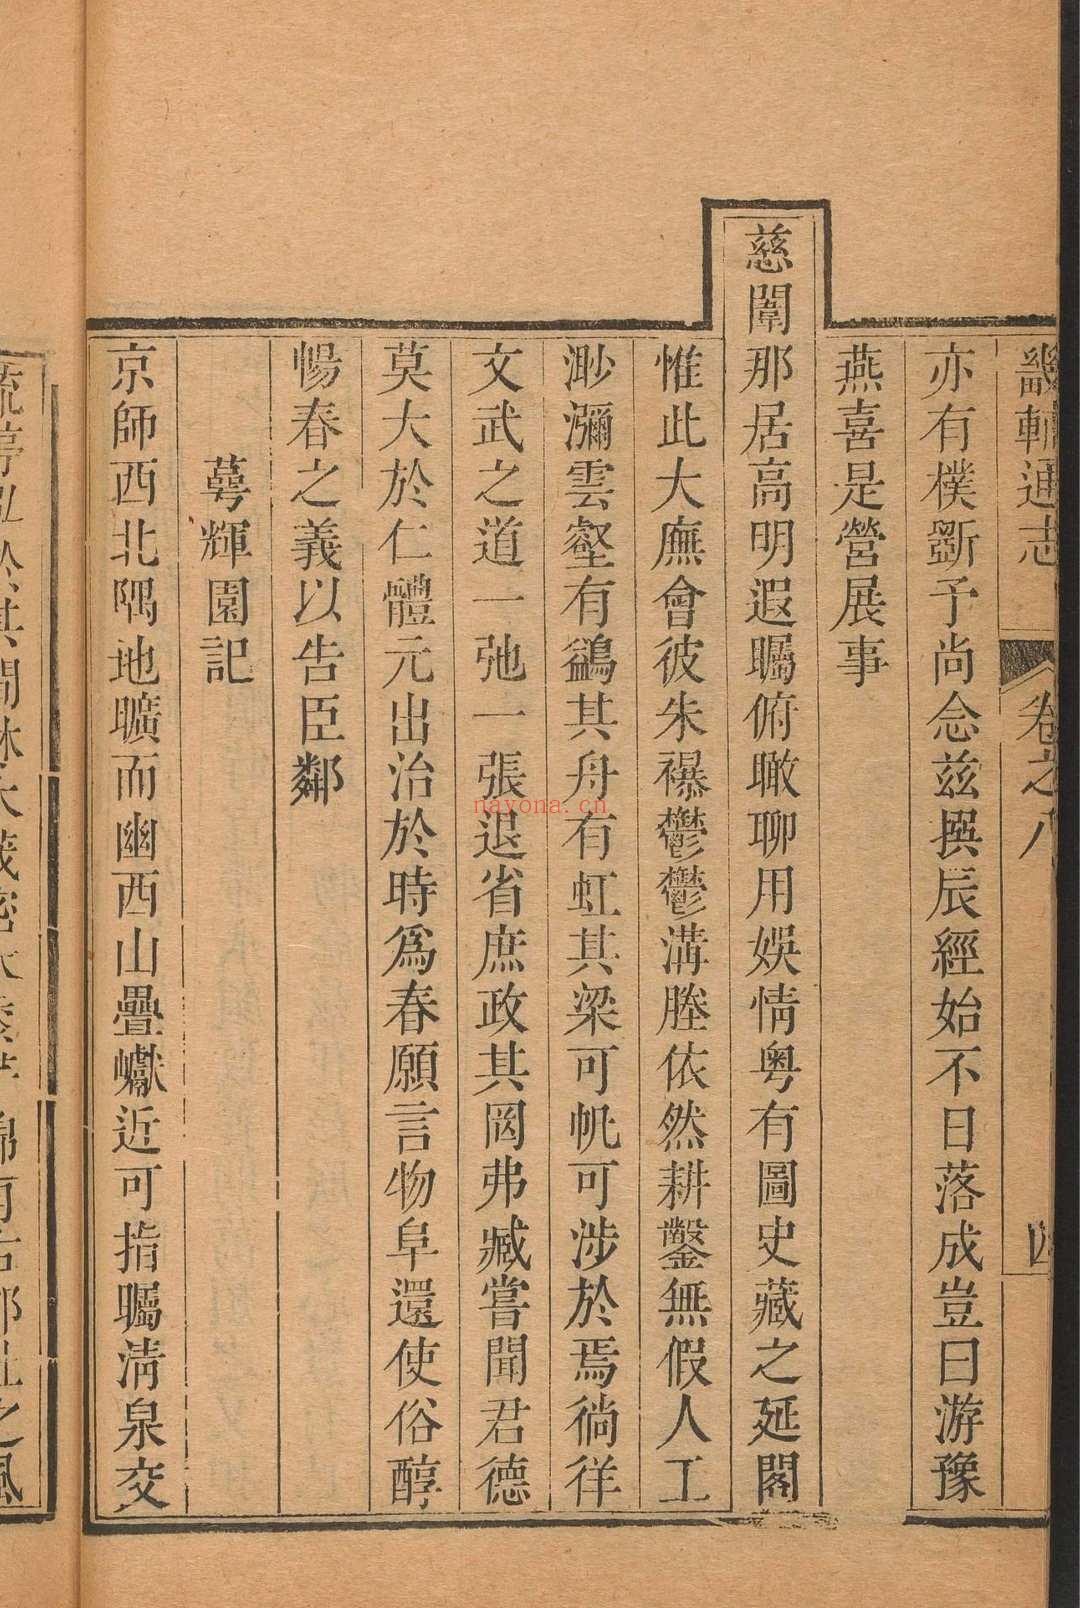 畿輔通志 卷之八 四
亦有樸斲予尚念茲撰辰經始不日落成豈曰游豫
燕喜是營展事
慈闈那居高明遐矚俯瞰聊用娛情粵有圖史藏之延閣
惟此大廡會彼朱襮鬱鬱溝塍依然耕鑿無假人工
渺瀰雲壑有鷁其舟有虹其梁可帆可涉於焉徜徉
文武之道一弛一張退省庶政其罔弗臧嘗聞君德
莫大於仁體元出治於時為春願言物阜還使俗醇
暢春之義以告臣鄰
蕚輝園記
京師西北隅地曠而幽西山疊巘近可指矚清泉交
nayona.cn